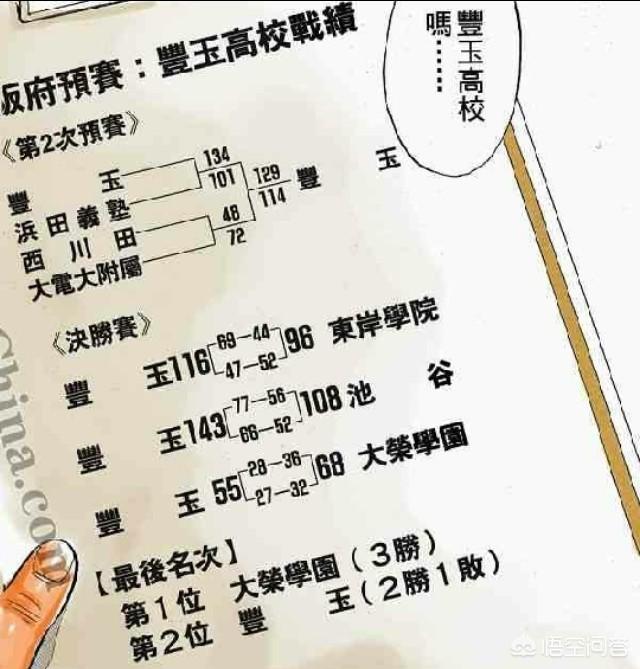 豐玉高校
嗎……
阪府預賽：豐玉高校戰績
《第2次預賽》
豐玉 134
浜田義塾 101
129 豐玉
114
西川田 48
大電大附屬 72
《決勝賽》
豐玉116 69—44 96 東岸學院
47—52
豐玉143 77—56 108 池谷
66—52
豐玉 55 28—36 68 大榮學園
27—32
【最後名次】
第1位 大榮學園(3勝)
第2位 豐玉(2勝1敗)
China.com
悟空问答